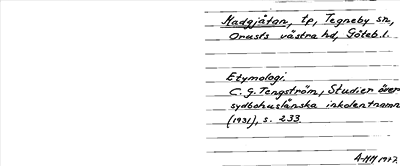 Kadgjätan, tp, Tegneby sn,
Orusts västra hd, Göteb. l.
Etymologi.
C. G. Tengström, Studier över
sydbohuslänska inkolentnamn
(1931), s. 233.
A-MH 1977.